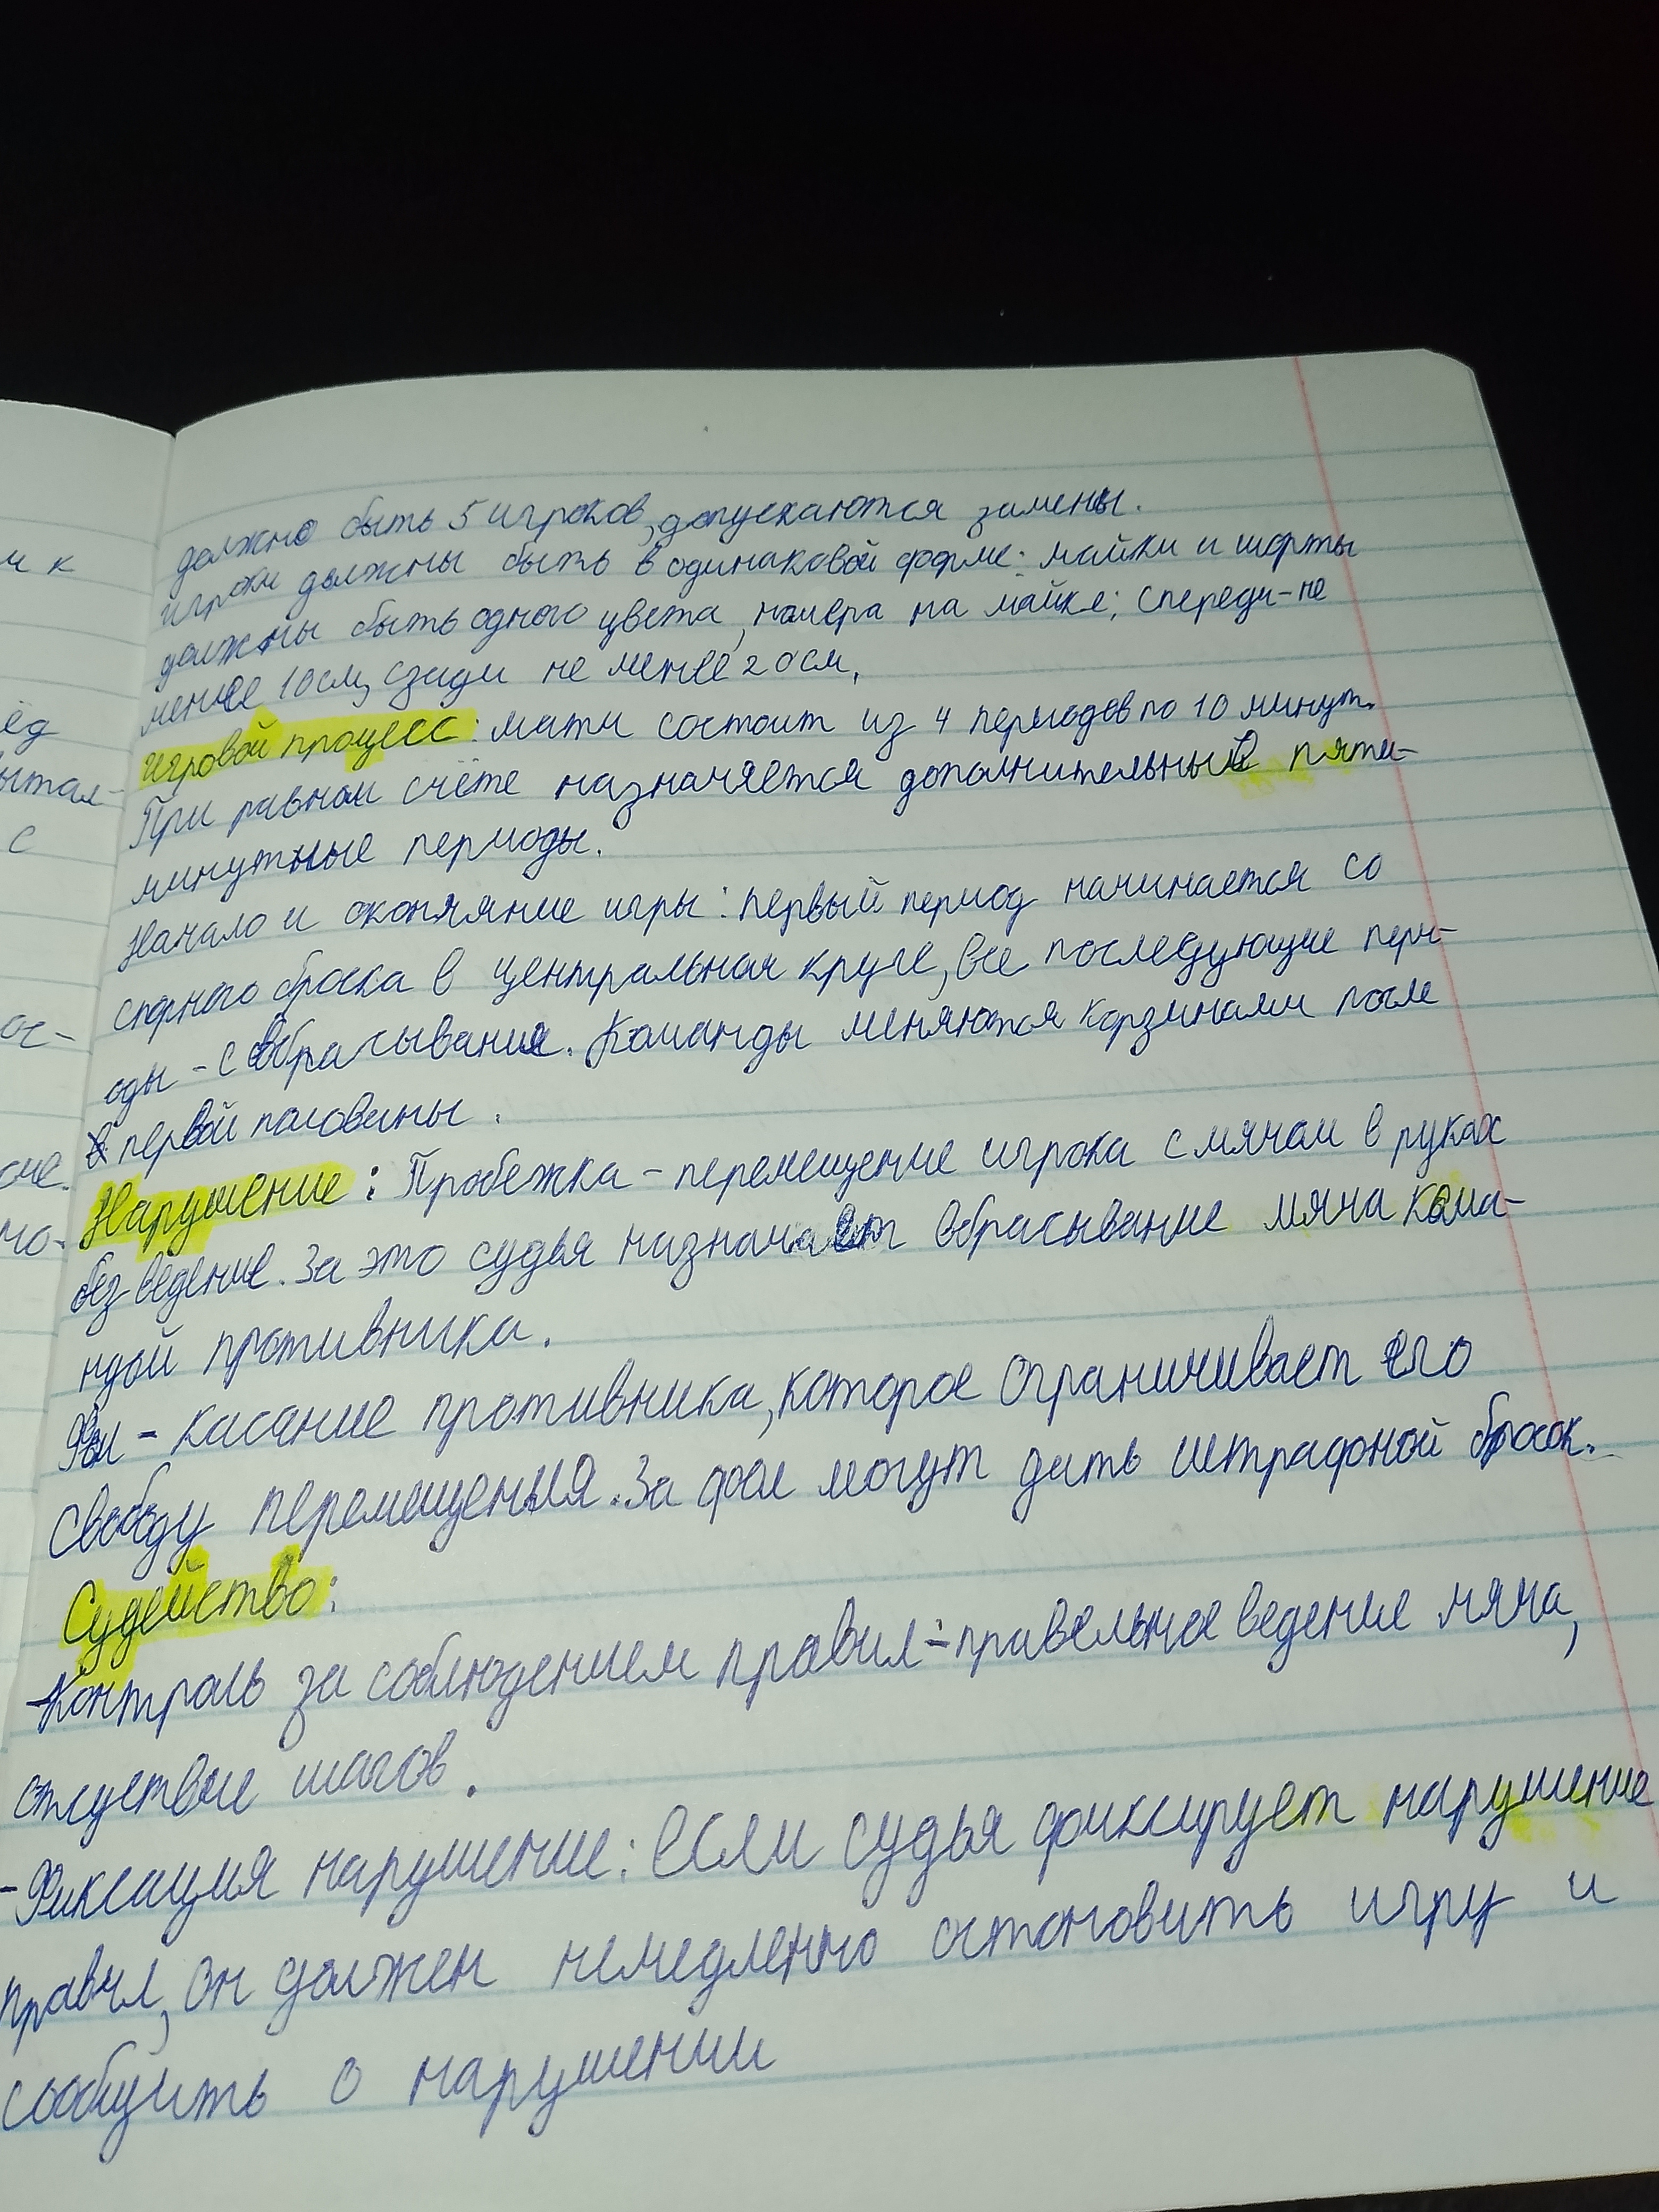 должно быть 5 игроков, допускаются замены.
игроки должны быть в одинаковой форме: майки и шорты
должны быть одного цвета, номера на майке: спереди-не
менее 10см, сзади не менее 20см.
Игровой процесс: матч состоит из 4 периодов по 10 минут.
При равном счёте назначяется дополнительные пяти-
минутные периоды.
Начало и окончание игры: первый период начинается со
спорного броска в центральном круге, все последующие пери-
оды - с вбрасывания. Команды меняются корзинами после
первой половины.
Нарушение: Пробежка - перемещение игрока с мячом в руках
без ведение. За это судья назначает вбрасывание мяча кома-
ндой противника.
Фол - касание противника, которое ограничивает его
свободу перемещения. За фол могут дать штрафоной бросок.
Судейство:
-Контроль за соблюдением правил - правельное ведение мяча,
отсуствие шагов.
-Фиксация нарушение: если судья фиксирует нарушение
правил, он должен немедленно остановить игру и
сообщить о нарушении
м к
ёд
ытал-
с
ос-
сме.
мо-